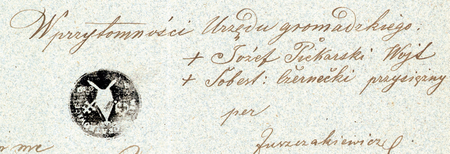 W przytomności Urzędu gromadzkiego.
+ Józef Piekarski Wójt
+ Sobest: Czernecki przysiężny
per
Juszczakiewicz